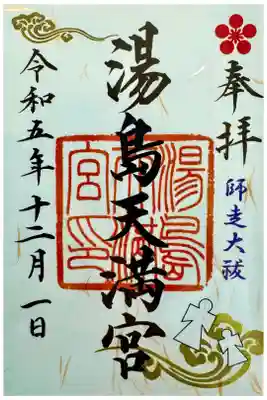 奉拝
師走大祓
湯島天満宮
令和五年十二月一日
湯島
宮印